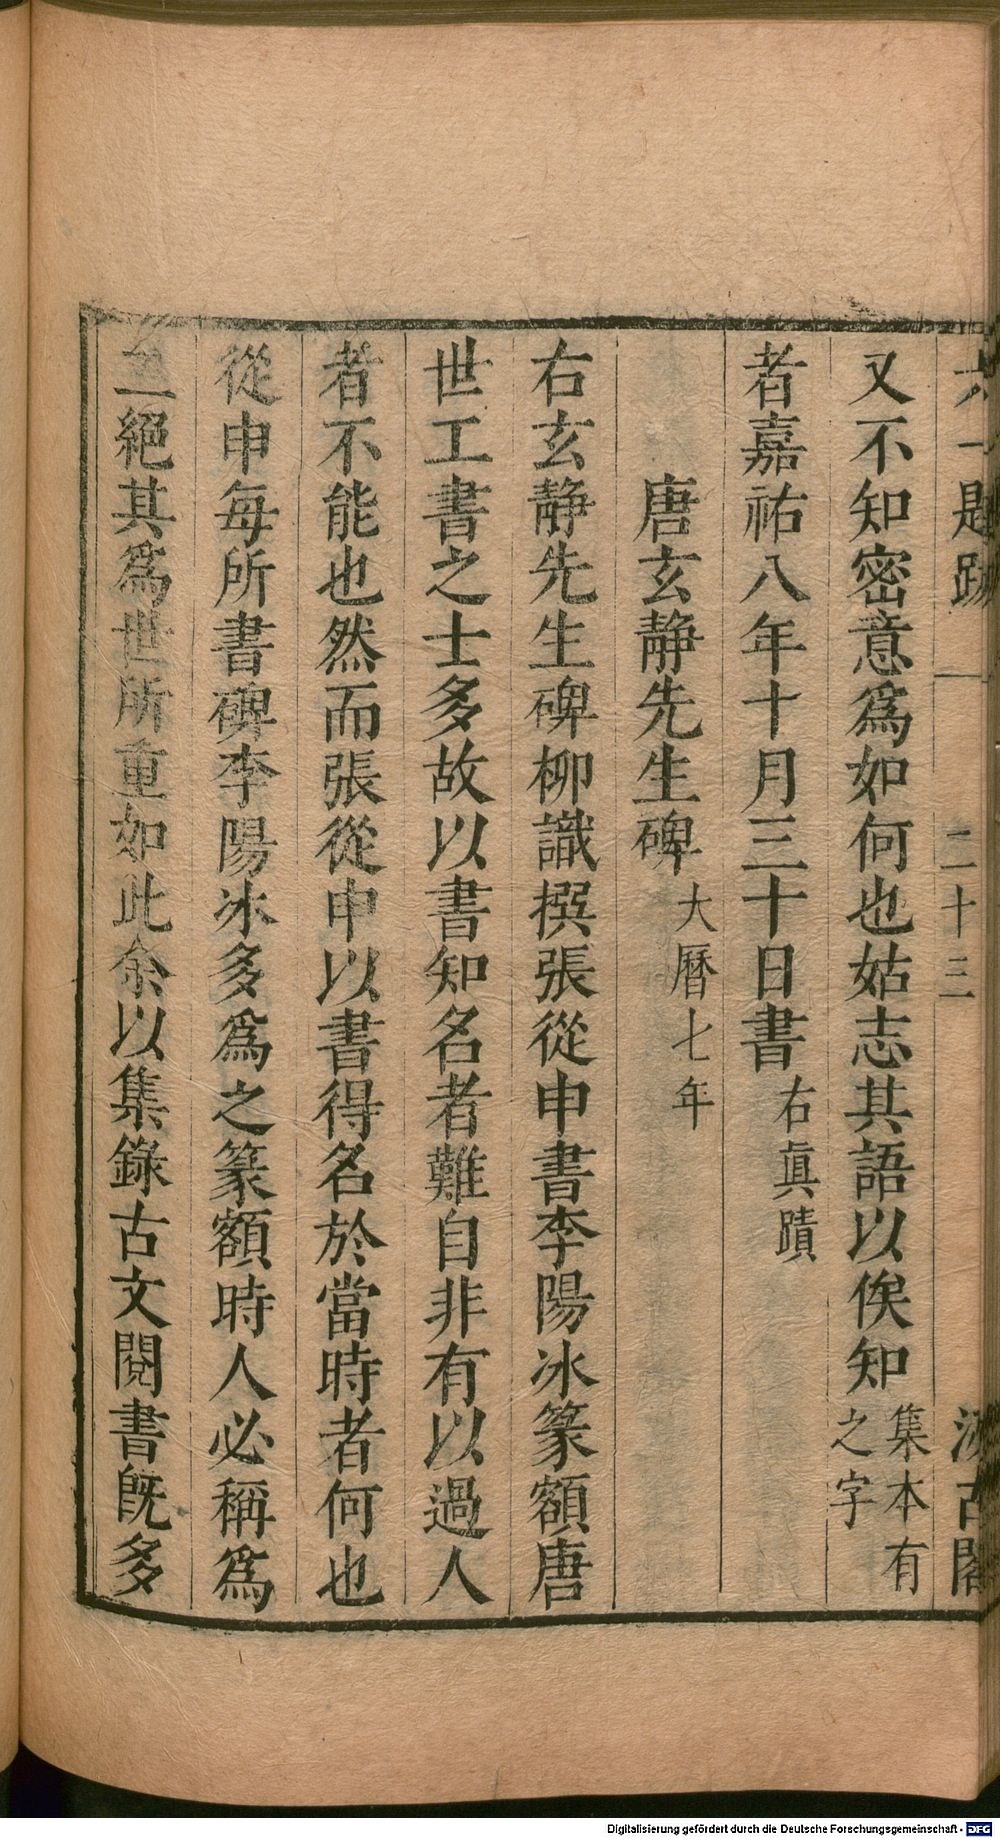 六一題跋 二十三 汲古閣
又不知密意爲如何也姑志其語以俟知集本有之字
者嘉祐八年十月三十日書右眞蹟
唐玄靜先生碑大曆七年
右玄靜先生碑柳識撰張從申書李陽冰篆額唐
世工書之士多故以書知名者難自非有以過人
者不能也然而張從申以書得名於當時者何也
從申每所書碑李陽冰多爲之篆額時人必稱爲
二絕其爲世所重如此余以集錄古文閱書旣多
Digitalisierung gefördert durch die Deutsche Forschungsgemeinschaft - DFG